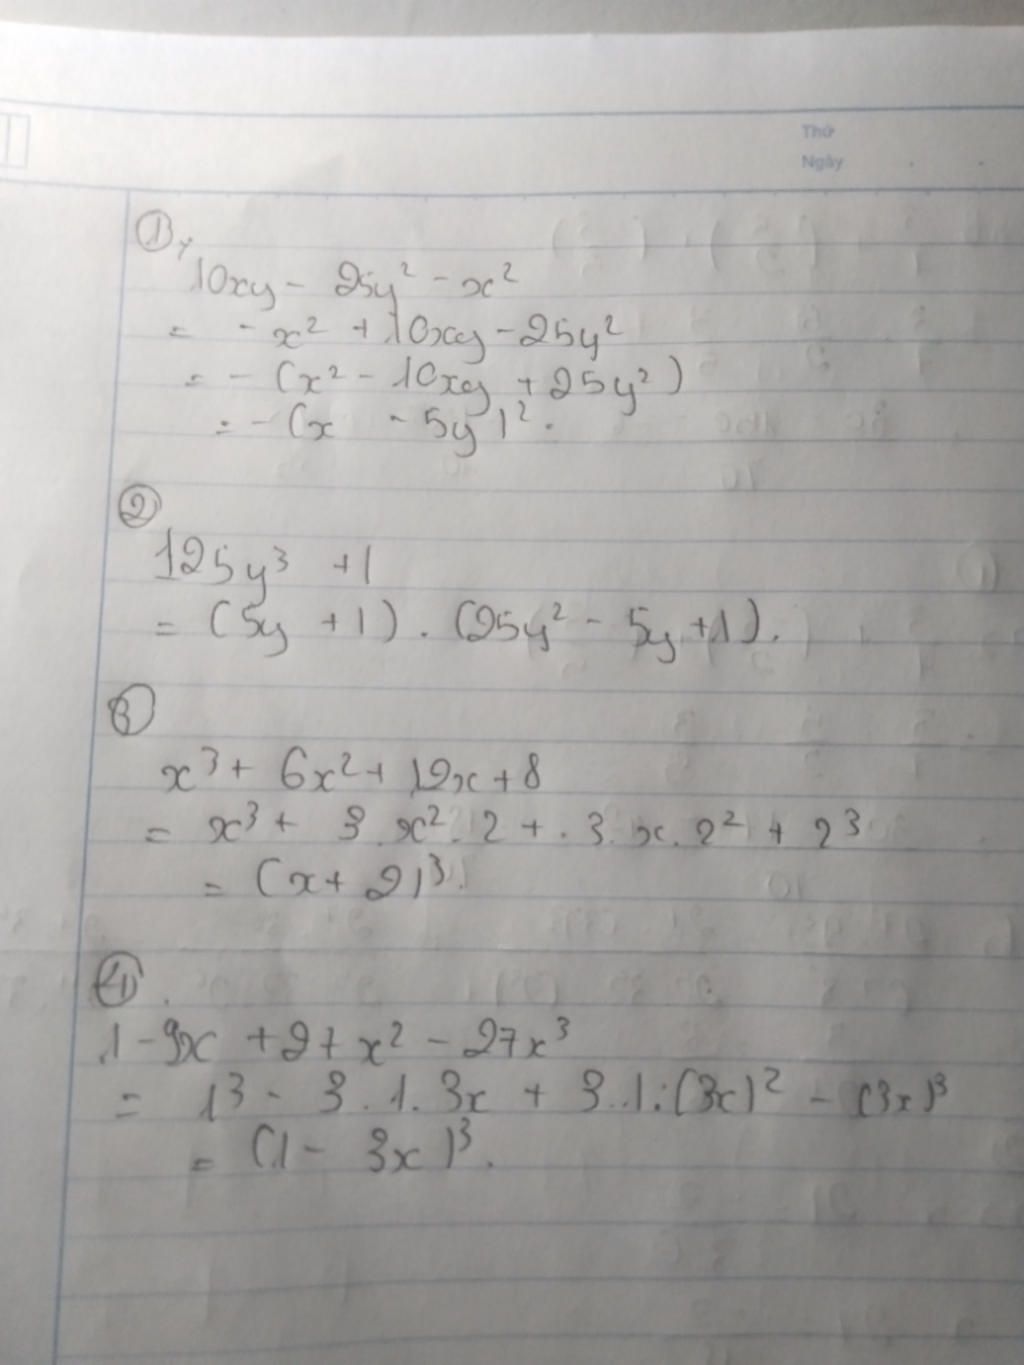 Thứ
Ngày
①,
10xy - 25y² - x²
= - x² + 10xy - 25y²
= - (x² - 10xy + 25y²)
= - (x - 5y)².
②
125y³ + 1
= (5y + 1) . (25y² - 5y + 1).
③
x³ + 6x² + 12x + 8
= x³ + 3.x².2 + .3.x.2² + 2³
= (x + 2)³.
④.
1 - 9x + 27x² - 27x³
= 1³ - 3.1.3x + 3.1.(3x)² - (3x)³
= (1 - 3x)³.